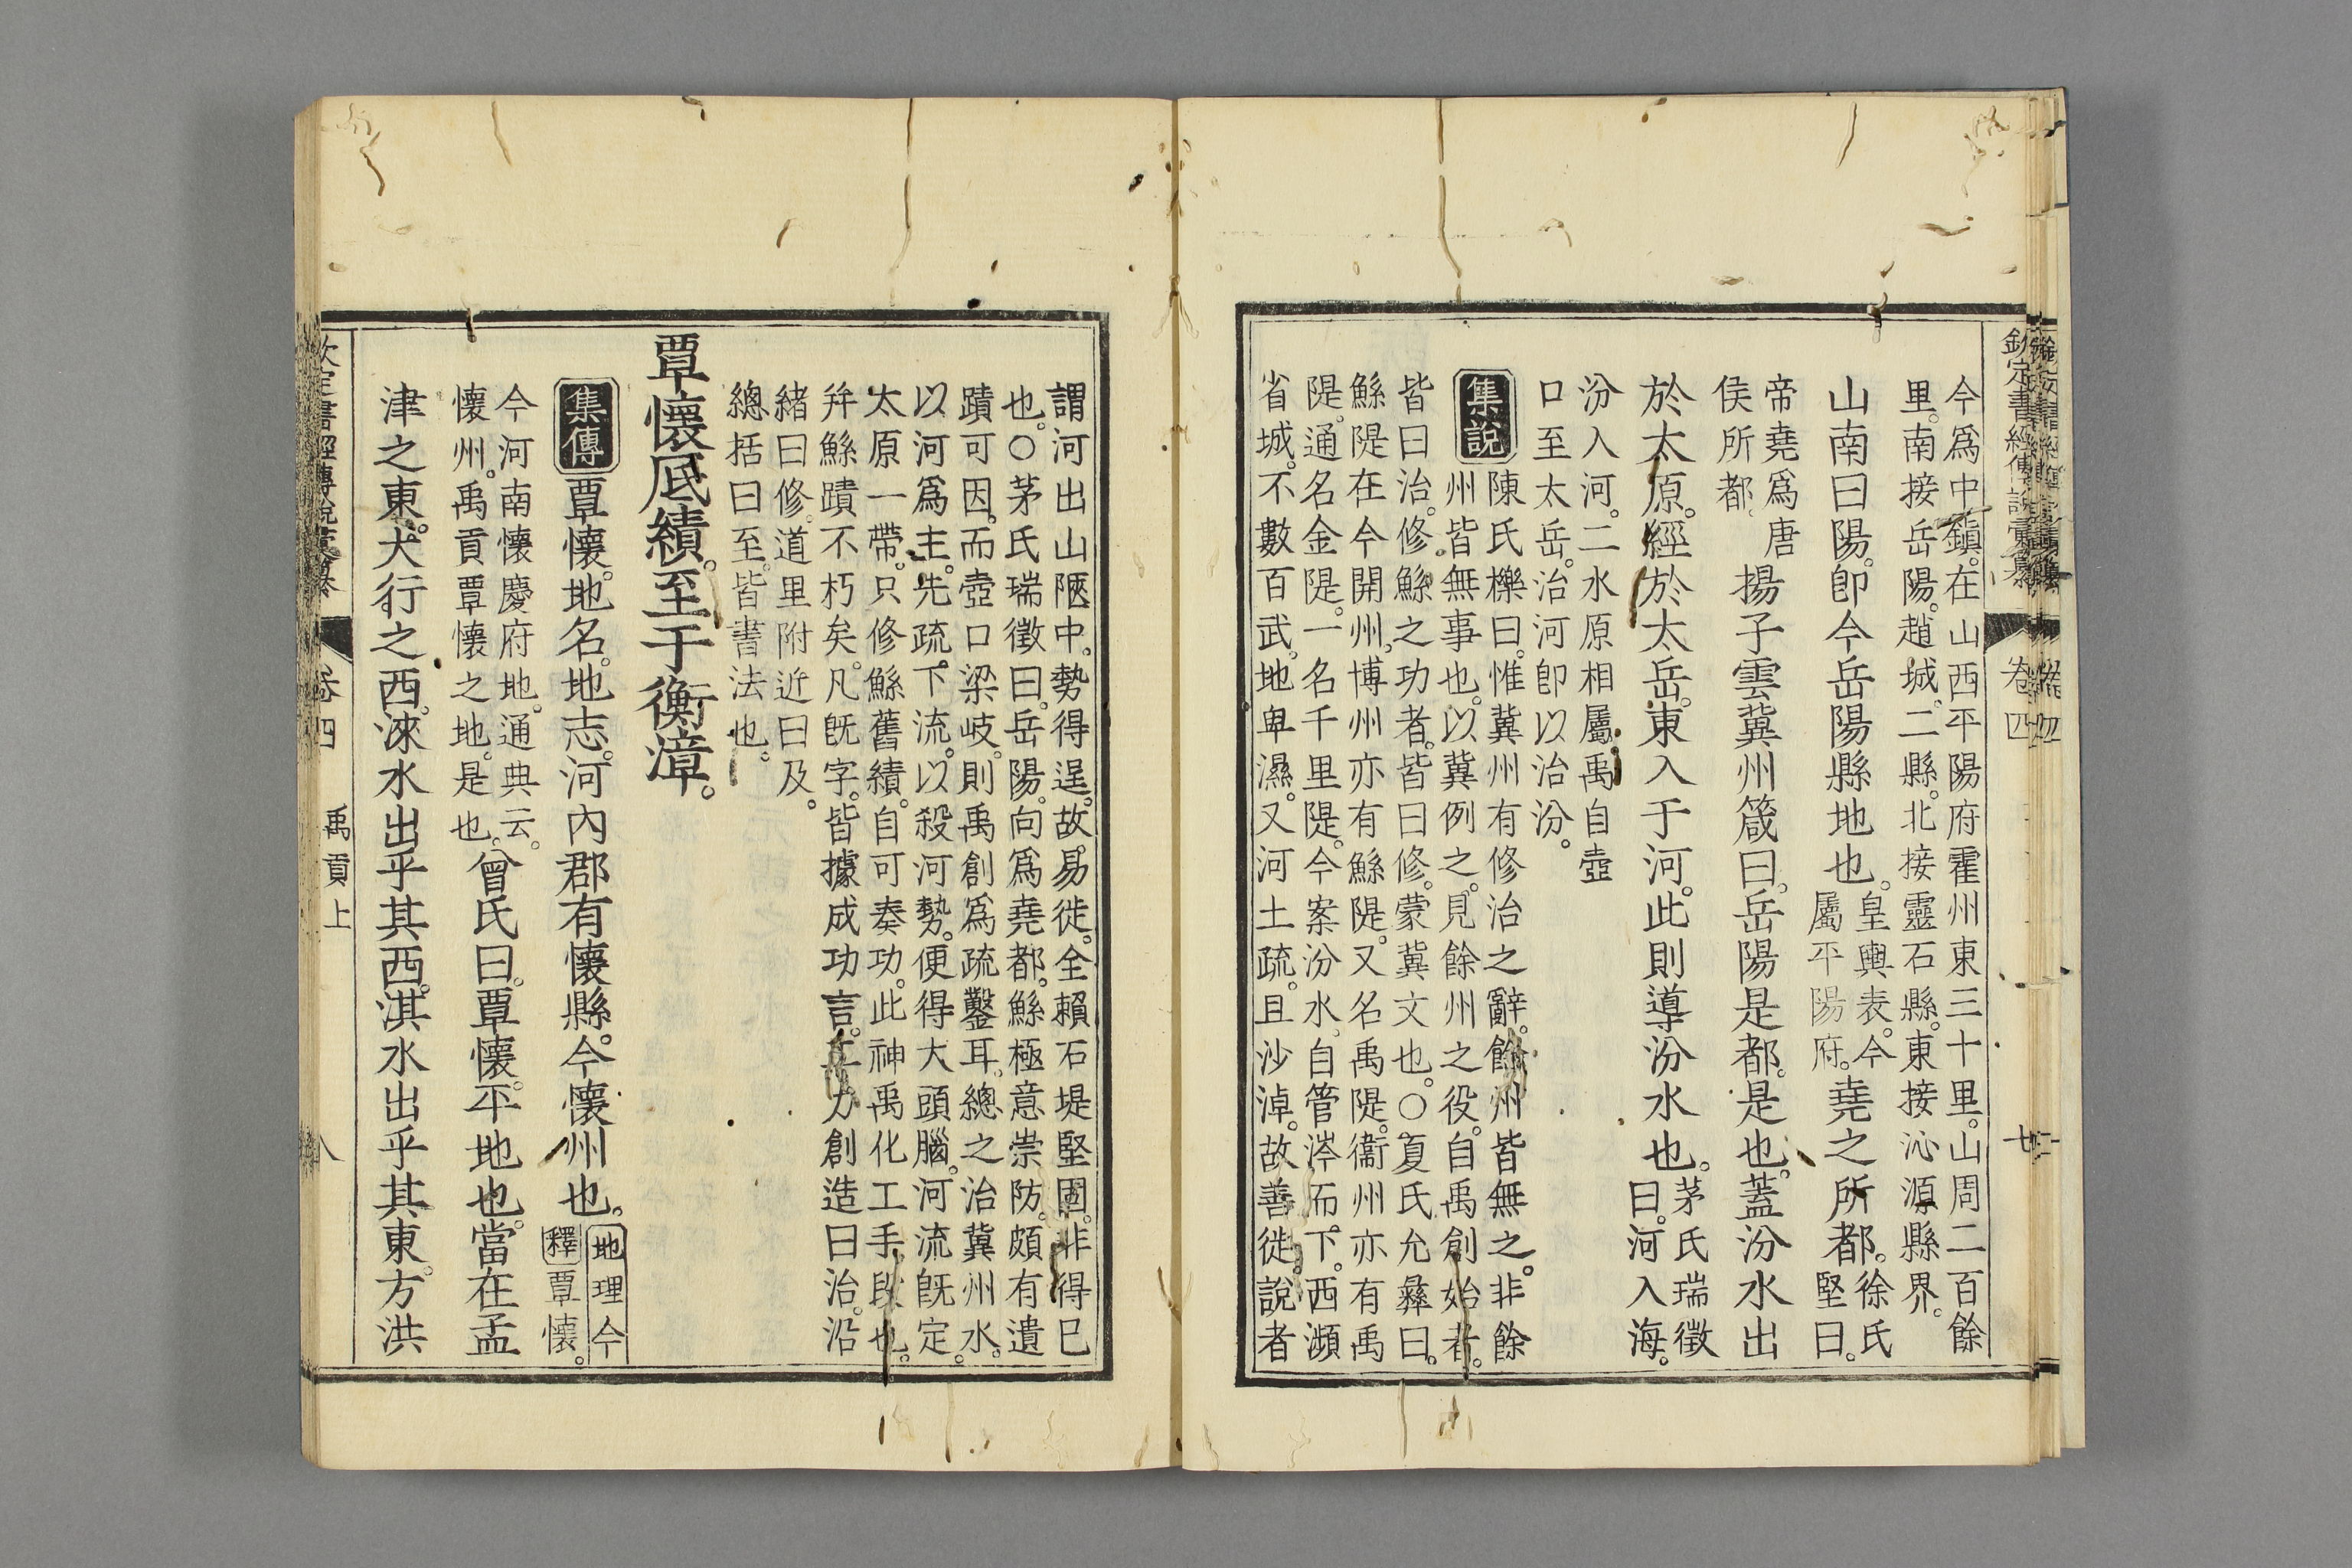 欽定書經傳說彙纂
卷四
今爲中鎮。在山西平陽府霍州東三十里。山周二百餘
里。南接岳陽。趙城。二縣。北接靈石縣。東接沁源縣界。
山南曰陽。卽今岳陽縣地也。皇輿表。今屬平陽府。堯之所都。徐氏堅曰。
帝堯爲唐侯所都揚子雲冀州箴曰。岳陽是都。是也。蓋汾水出
於太原。經於太岳。東入于河。此則導汾水也。茅氏瑞徵曰。河入海。
汾入河。二水原相屬。禹自壺
口至太岳。治河卽以治汾。
集說 陳氏櫟曰。惟冀州有修治之辭。餘州皆無之。非餘
州皆無事也。以冀例之。見餘州之役。自禹創始者。
皆曰治。修鯀之功者。皆曰修。蒙冀文也。○夏氏允彝曰。
鯀隄在今開州。博州亦有鯀隄。又名禹隄。衞州亦有禹
隄。通名金隄。一名千里隄。今案汾水。自管涔而下。西瀕
省城。不數百武。地卑濕。又河土疏。且沙淖。故善徙。說者
謂河出山陿中。勢得逞。故易徙。全賴石堤堅固。非得已
也。○茅氏瑞徵曰。岳陽。向爲堯都。鯀極意崇防。頗有遺
蹟可因。而壺口梁岐。則禹創爲疏鑿耳。總之治冀州水。
以河爲主。先疏下流。以殺河勢。便得大頭腦。河流旣定。
太原一帶。只修鯀舊績。自可奏功。此神禹化工手段也。
幷鯀蹟不朽矣。凡旣字。皆據成功言。力創造曰治。沿
緒曰修。道里附近曰及。
總括曰至。皆書法也。
覃懷厎績。至于衡漳。
集傳 覃懷。地名。地志。河內郡有懷縣。今懷州也。地理今釋覃懷。
今河南懷慶府地。通典云。懷州。禹貢覃懷之地。是也。曾氏曰。覃懷。平地也。當在孟
津之東。太行之西。淶水出乎其西。淇水出乎其東。方洪
欽定書經傳說彙纂
卷四
禹貢上